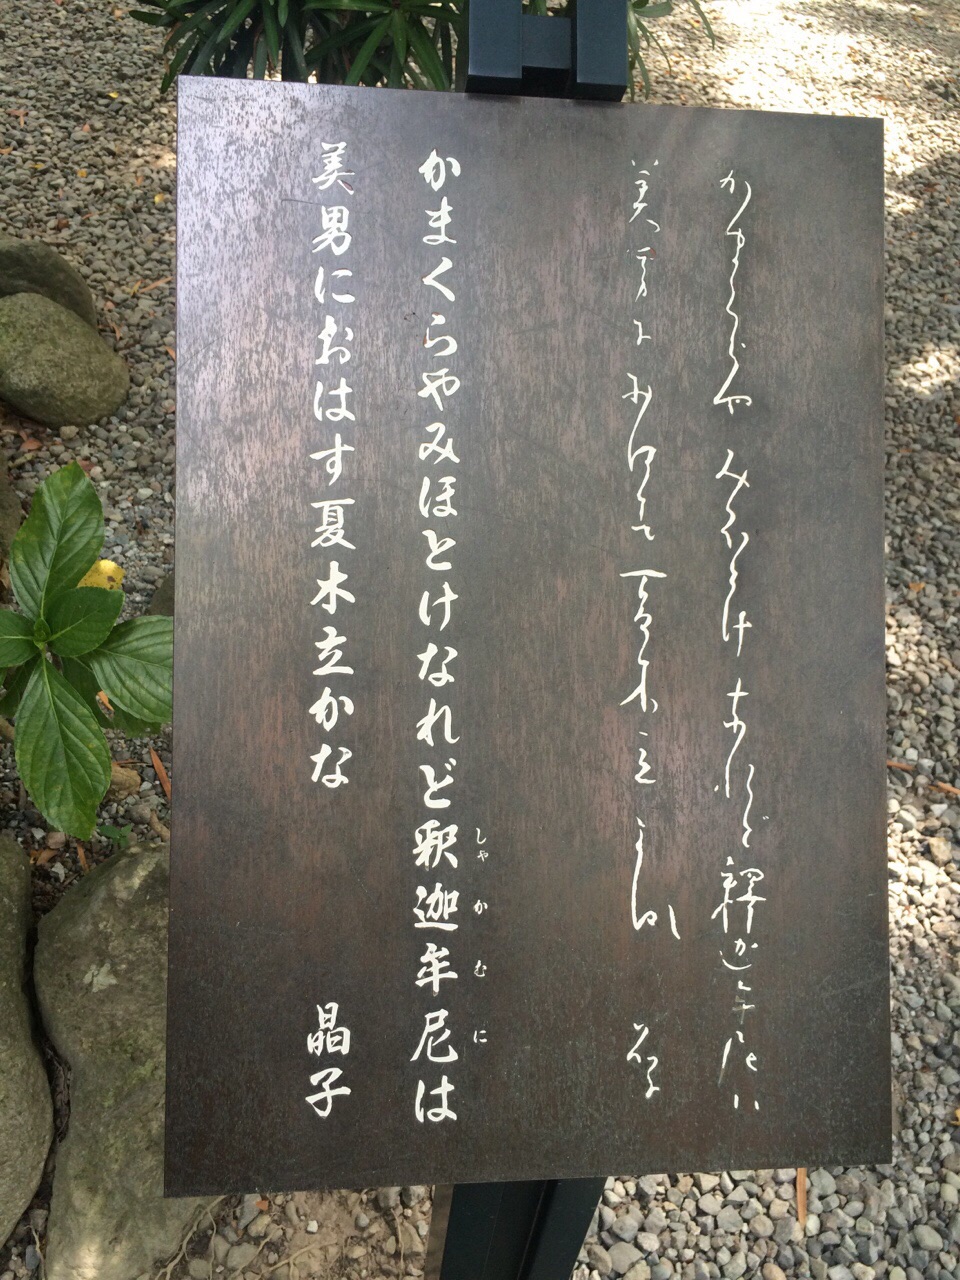 かまくらや みほとけなれど 釋迦牟尼は
美男におはす 夏木立かな 晶子
かまくらやみほとけなれど釈迦牟尼は
しゃかむに
美男におはす夏木立かな 晶子